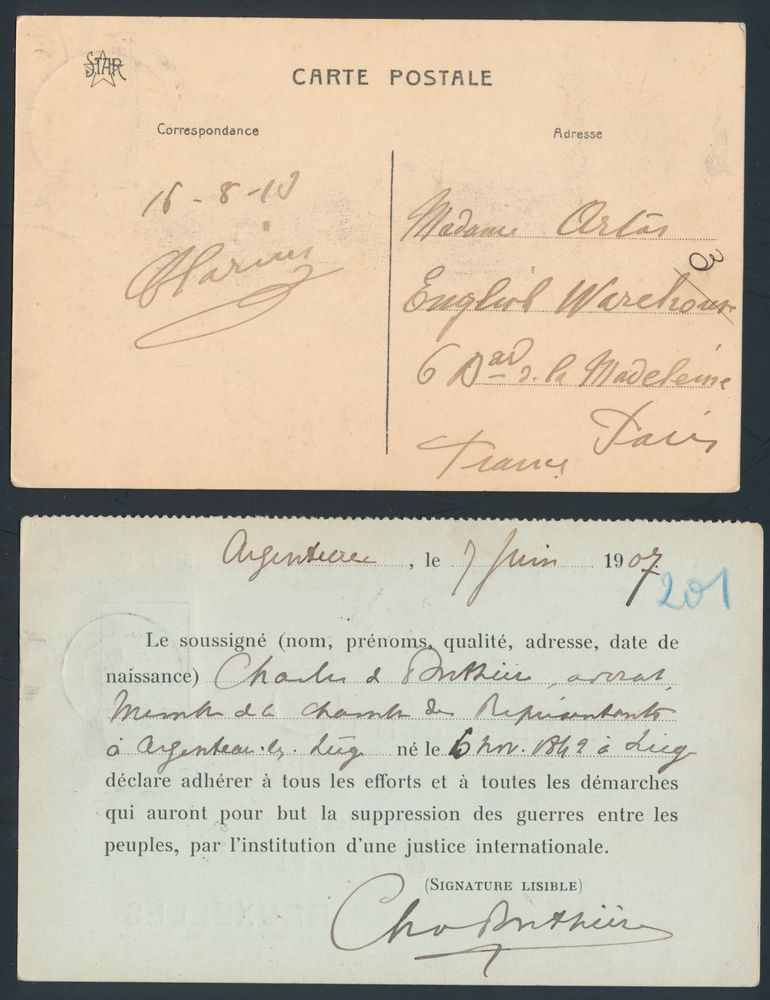 STAR
CARTE POSTALE
Correspondance
Adresse
16 - 8 - 10
Marius
Madame
3
English Warehouse
6 Bard d. la Madeleine
Paris
France
Argenteau, le 7 Juin 1907
201
Le soussigné (nom, prénoms, qualité, adresse, date de
naissance) Charles d, avocat
Membre de la chambre des Représentants
à Argenteau-lz-Liége né le 6 nov. 1842 à Liége
déclare adhérer à tous les efforts et à toutes les démarches
qui auront pour but la suppression des guerres entre les
peuples, par l'institution d'une justice internationale.
(SIGNATURE LISIBLE)